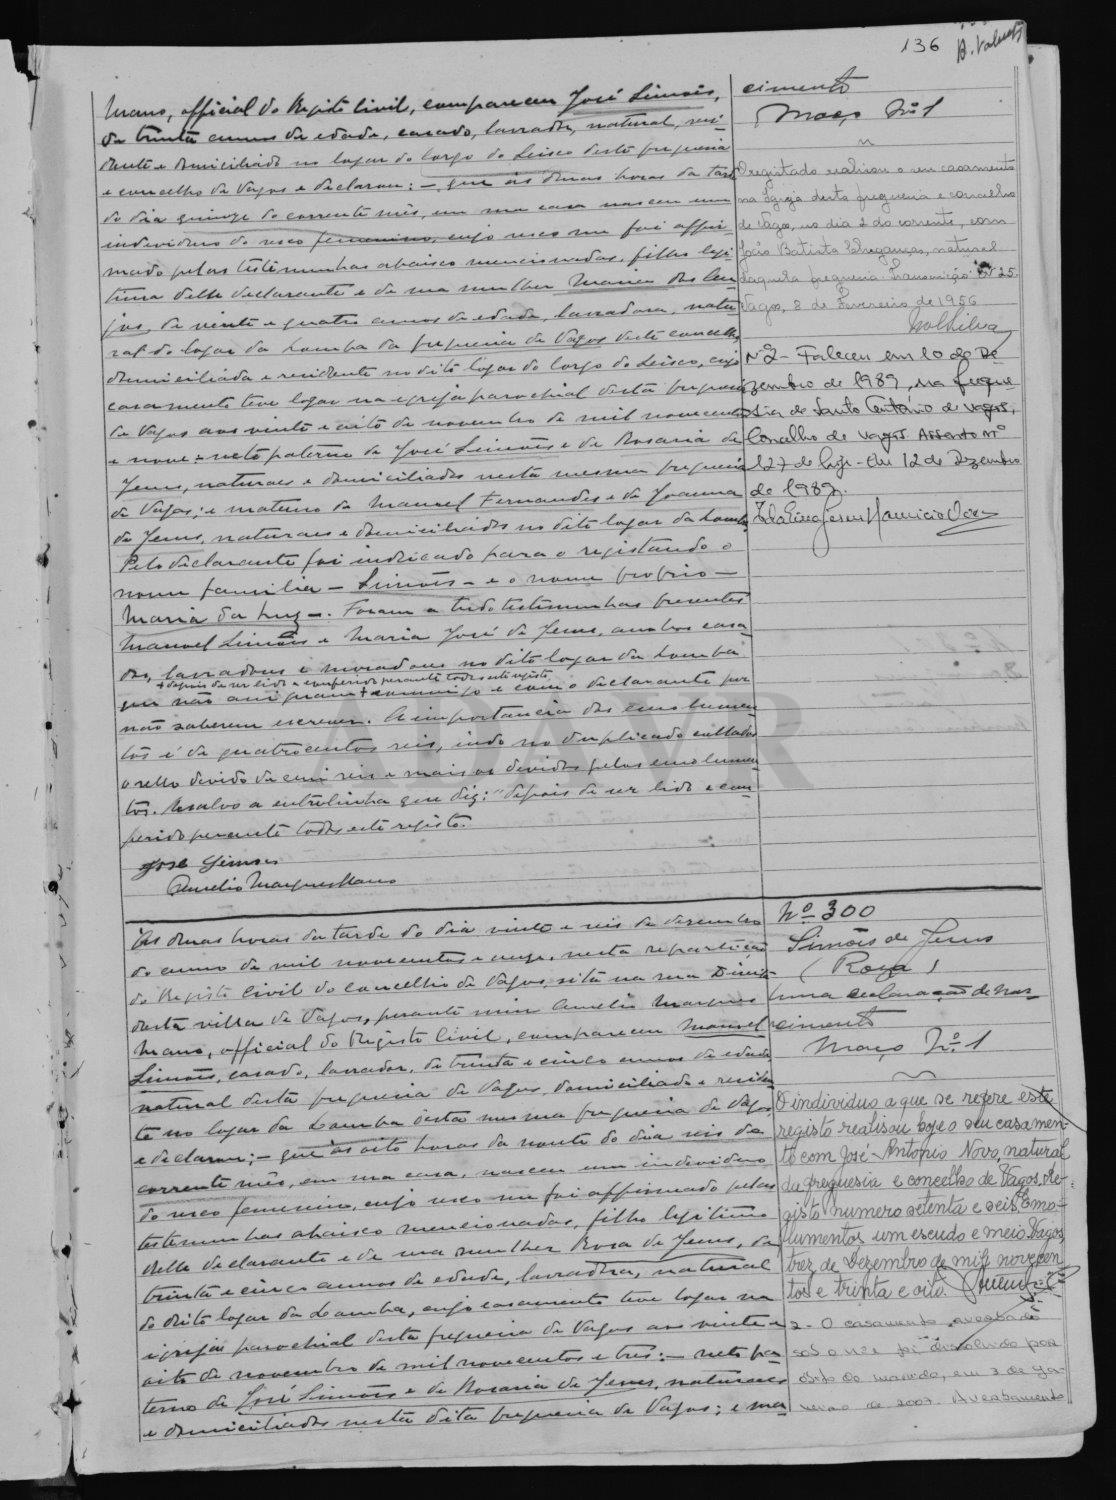 136
Mano, official do Registo Civil, compareceu José Simões,
de trinta annos de edade, casado, lavrador, natural, resi-
dente e domiciliado no logar do Corgo do Seixo desta freguesia
e concelho de Vagos e declarou: — que ás duas horas da tarde
do dia quinze do corrente mês, em sua casa nasceu um
individuo do sexo femenino, cujo sexo me foi affir-
mado pelas testimunhas abaixo mencionadas, filha legi-
tima delle declarante e de sua mulher Maria dos An-
jos, de vinte e quatro annos de edade, lavradora, natu-
ral do logar da Lomba da freguesia de Vagos deste concelho,
domiciliada e residente no dito logar do Corgo do Seixo, cujo
casamento teve logar na egreja parochial desta freguesia
de Vagos aos vinte e oito de novembro de mil novecentos
e nove: neto paterno de José Simões e de Rosaria de
Jesus, naturaes e domiciliados nesta mesma freguesia
de Vagos; e materno de Manuel Fernandes e de Joanna
de Jesus, naturaes e domiciliados no dito logar da Lomba.
Pelo declarante foi indicado para o registando o
nome familia — Simões — e o nome proprio —
Maria da Luz —. Foram a tudo testimunhas presentes
Manuel Simões e Maria José de Jesus, ambos casa-
dos, lavradores e moradores no dito logar da Lomba
+ depois de ser lido e conferido perante todos este registo
que não assignam + commigo e com o declarante por
não saberem escrever. A importancia dos emolumen-
tos é de quatrocentos reis, indo no duplicado collado
o sello devido de cem reis e mais os devidos pelos emolumen-
tos. Resalvo a entrelinha que diz: "depois de ser lido e con-
ferido perante todos este registo.
José Simões
Aurelio Marques Mano
cimento
Maço Nº 1
O registado realisou o seu casamento
na Igreja desta freguesia e concelho
de Vagos, no dia 2 do corrente, com
João Batista, natural
daquela freguesia. Transcrição Nº 25.
Vagos, 8 de Fevereiro de 1956
Nº2 - Faleceu em 10 de De
zembro de 1989, na fregue
sia de Santo António de Vagos,
Concelho de Vagos. Assento nº
127 de hoje - Em 12 de Dezembro
de 1989.
ADAVR
Ás duas horas da tarde do dia vinte e seis de dezembro
do anno de mil novecentos e onze, nesta repartição
do Registo Civil do concelho de Vagos, sita na rua Direita
desta villa de Vagos, perante mim Aurelio Marques
Mano, official do Registo Civil, compareceu Manuel
Simões, casado, lavrador, de trinta e cinco annos de edade
natural desta freguesia de Vagos, domiciliado e residen-
te no logar da Lomba desta mesma freguesia de Vagos
e declarou: — que ás oito horas da noute do dia seis do
corrente mês, em sua casa, nasceu um individuo
do sexo femenino, cujo sexo me foi affirmado pelas
testemunhas abaixo mencionadas, filho legitimo
delle declarante e de sua mulher Rosa de Jesus, de
trinta e cinco annos de edade, lavradora, natural
do dito logar da Lomba, cujo casamento teve logar na
egreja parochial desta freguesia de Vagos aos vinte e
oito de novembro de mil novecentos e tres: — neto pa-
terno de José Simões e de Rosaria de Jesus, naturaes
e domiciliados nesta dita freguesia de Vagos; e ma-
Nº 300
Simões de Jesus
(Rosa)
Uma declaração de nas-
cimento
Maço Nº 1
O individuo a que se refere este
registo realisou hoje o seu casamen-
to com José Antonio Novo, natural
da freguesia e concelho de Vagos. Re-
gisto numero setenta e seis. Emo-
lumentos um escudo e meio. Vagos,
trez de Dezembro de mil novecen-
tos e trinta e oito.
2 - O casamento averbado
sob o nº 1 foi dissolvido por
óbito do marido, em 3 de Ja-
neiro de 2007. Averbamento